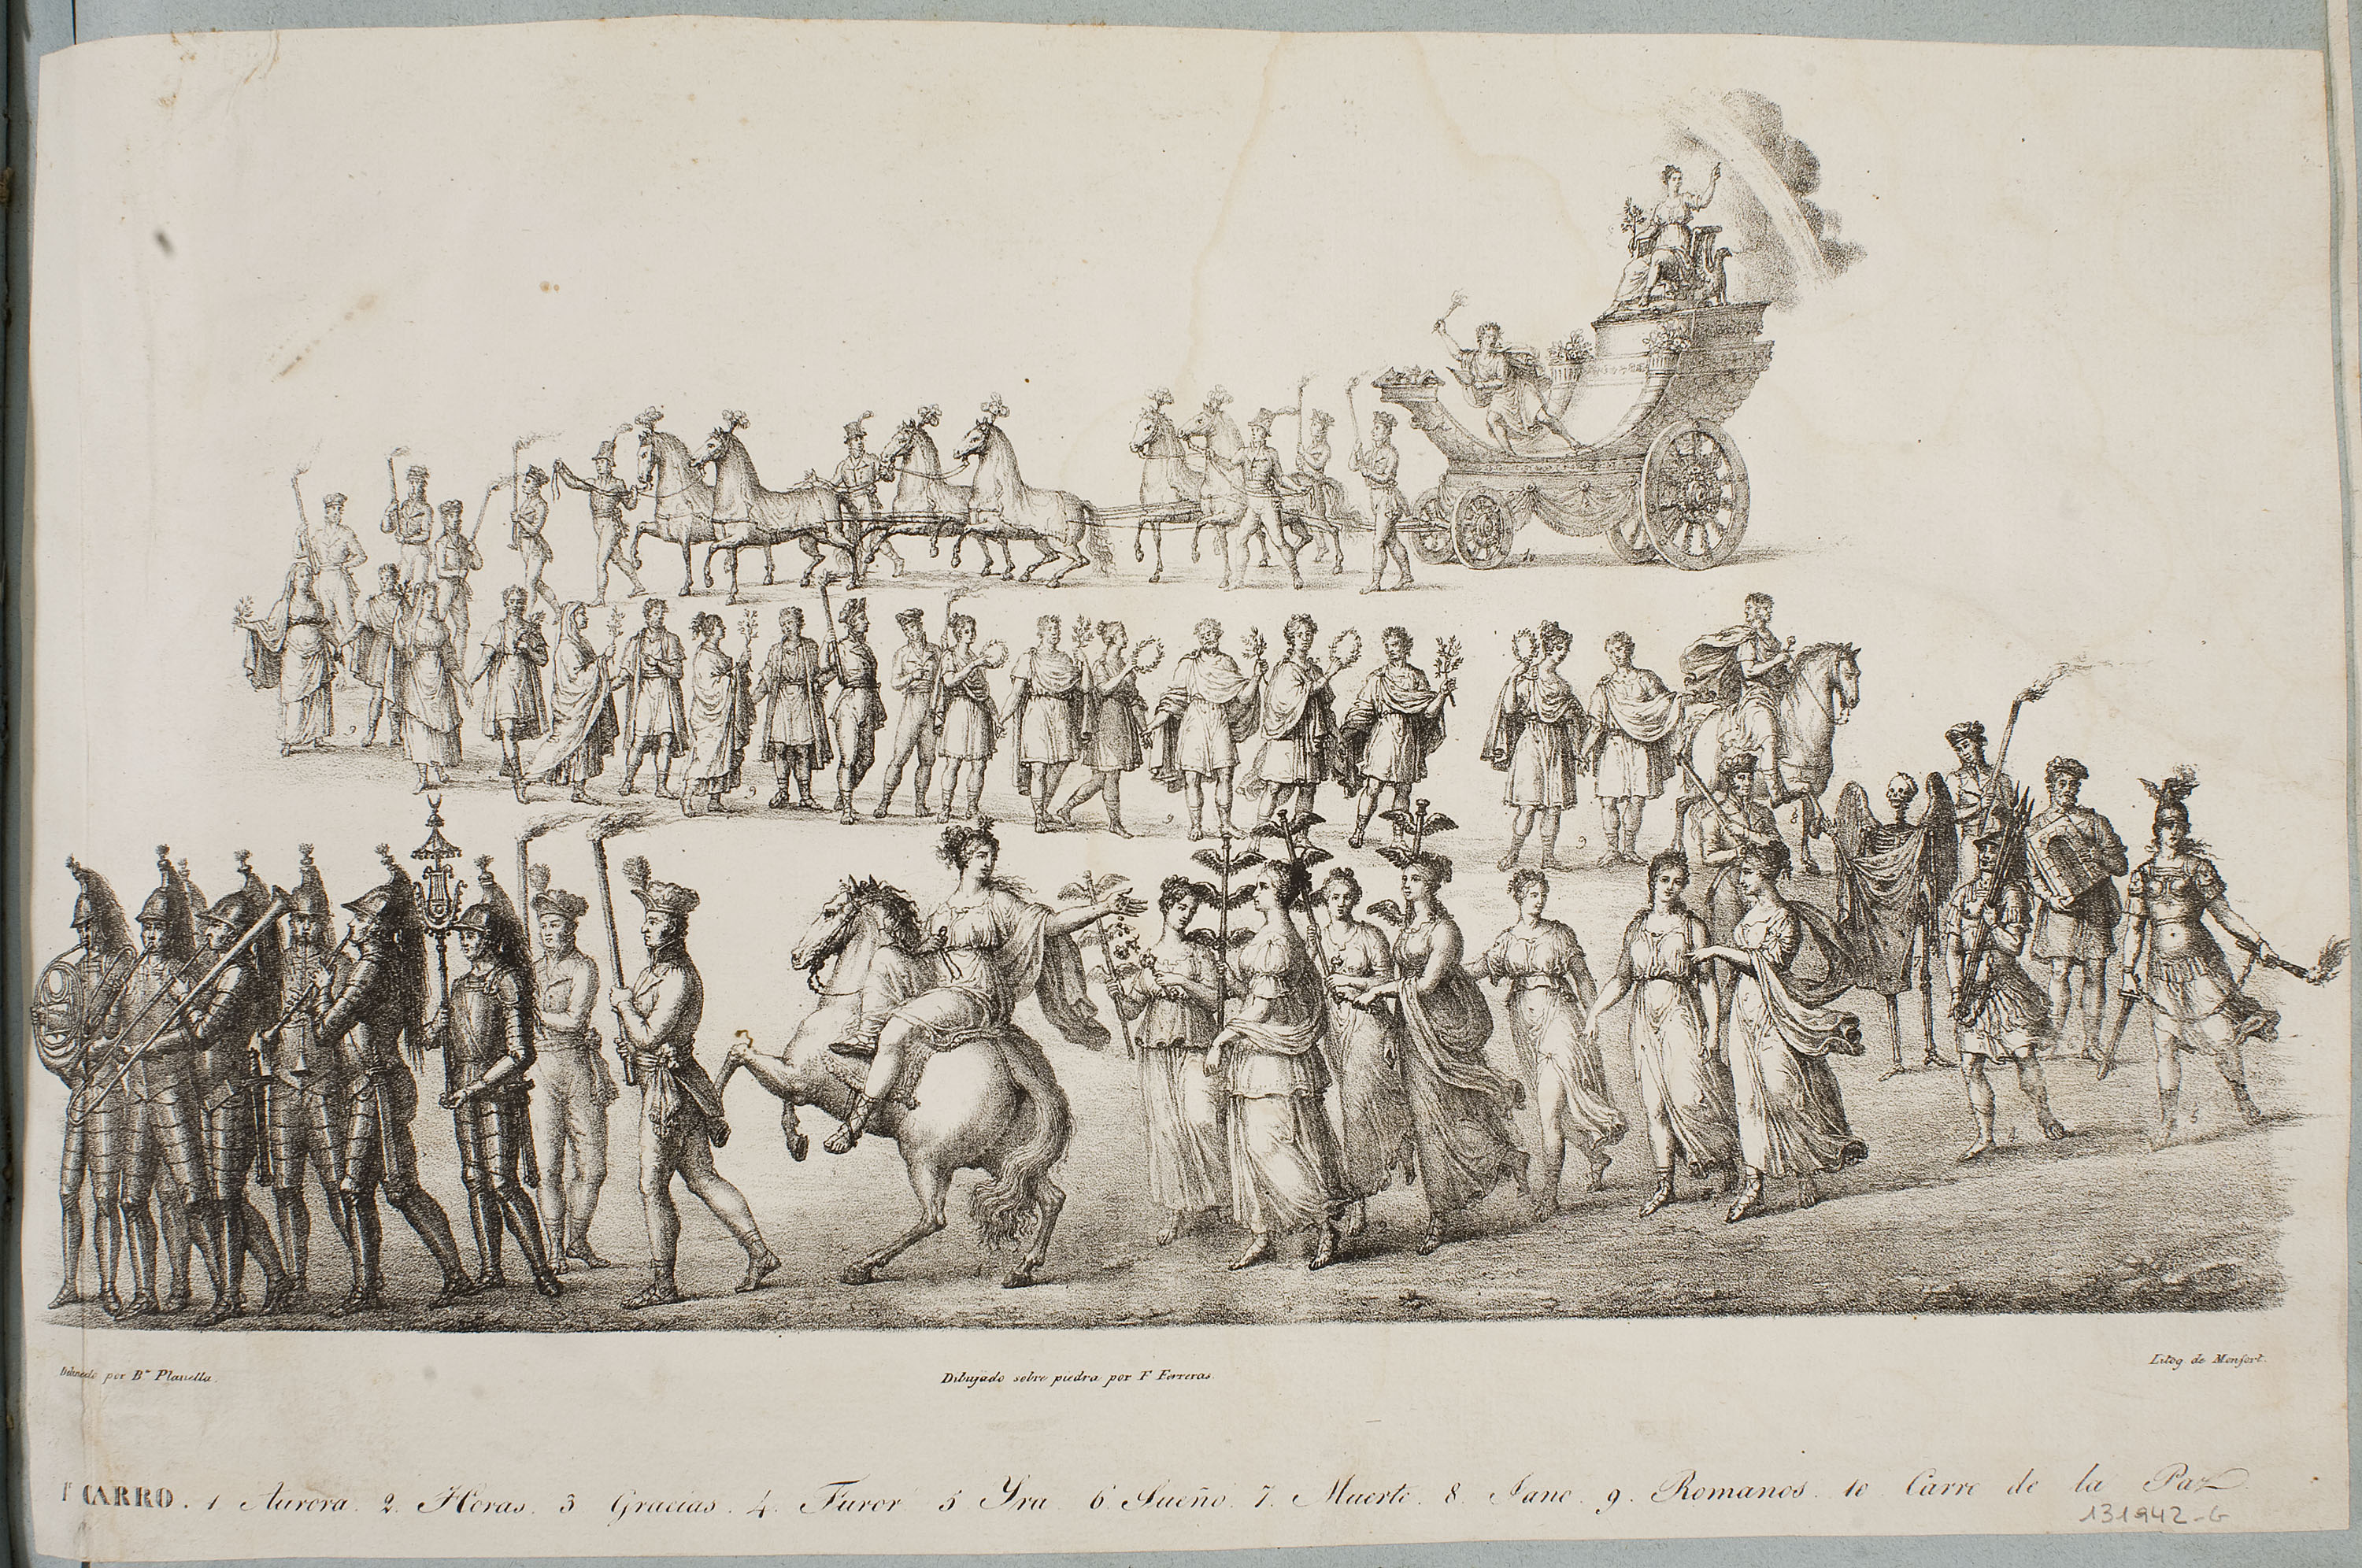 Delineado por Bᵃ Planella.
Dibujado sobre piedra por F Ferreras.
Litog. de Monfort.
1º CARRO. 1 Aurora. 2. Horas. 3 Gracias. 4. Furor 5 Yra 6 Sueño. 7. Muerte. 8. Jano. 9. Romanos. 10 Carro de la Paz.
131942-G